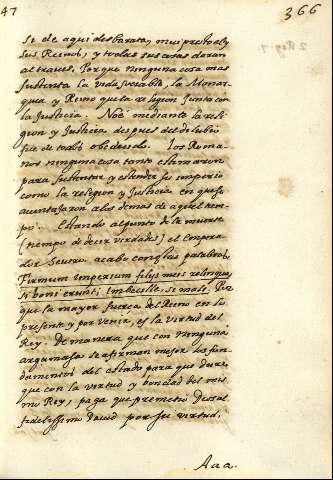 47
366
se de aqui desbarata, mui presto
sus Reinos, y todas sus cosas daran
al traves. Porque ninguna cosa mas
sustenta la vida sociable, la Monar-
quia y Reino que la religion junta con
la Justicia. Noe mediante la reli
gion y Justicia despues del deluvio
fue de todos obedecido. Los Roma-
nos ninguna cosa tanto estimaron
para sustentar y estender su imperio
como la religion y Justicia en que se
aventajaron a los demas de aquel tiem-
po. Estando al punto de la muerte
(tiempo de decir verdades) el Empera
dor Severo acabo con estas palabras,
Firmum imperium filijs meis relinquo,
si boni erunt; imbecille, si mali. Por
que la mayor fuerca del Reino en lo
presente y por venir, es la virtud del
Rey. De manera que con ninguna
argamasa se afirman mejor los fun-
damentos del estado para que dure
que con la virtud y bondad del mis
mo Rey, paga que prometio Dios al
fidelissimo David por su virtud.
Aaa.
2 Reg. 7.